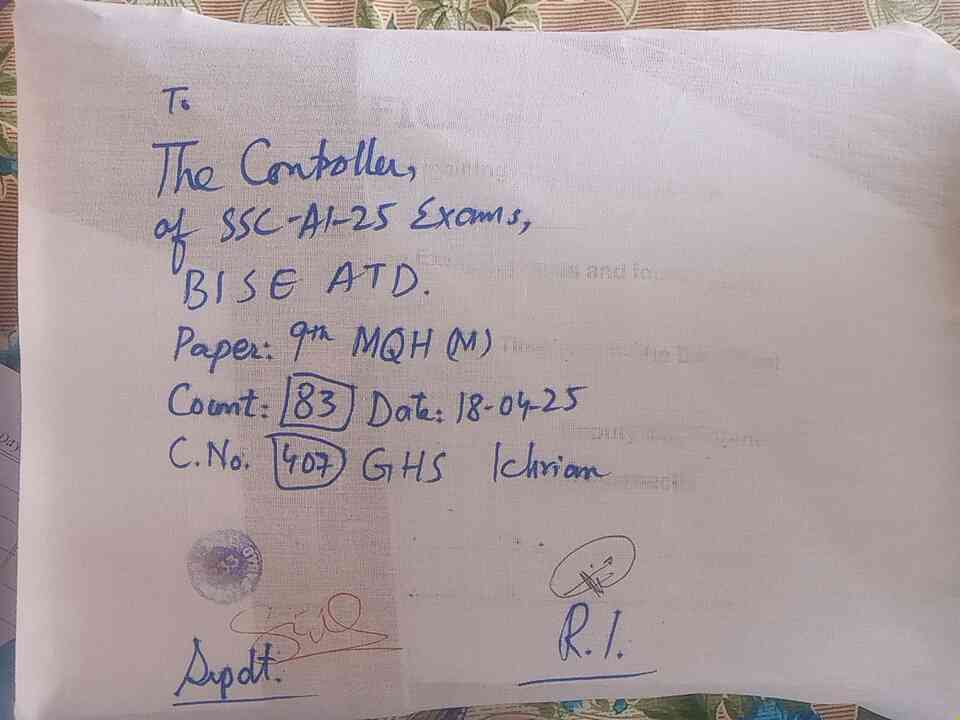 To
The Controller,
of SSC-A1-25 Exams,
BISE ATD.
Paper: 9th MQH (M)
Count: 83 Date: 18-04-25
C.No. 407 GHS Ichrian
Supdt.
R.I.